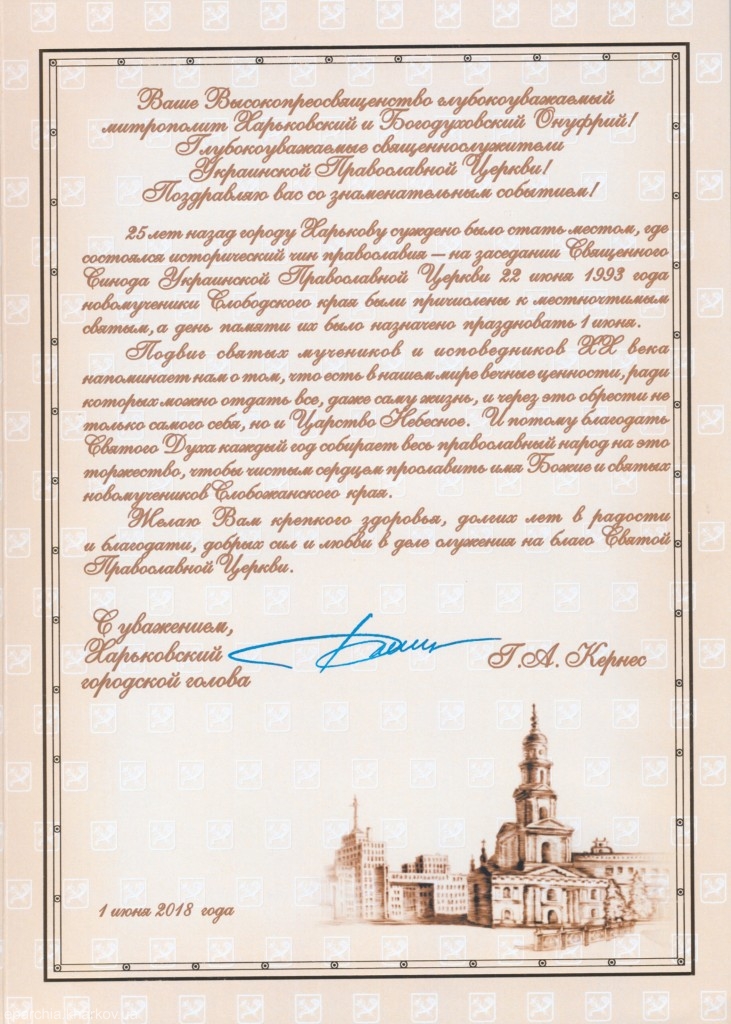 Ваше Высокопреосвященство глубокоуважаемый
митрополит Харьковский и Богодуховский Онуфрий!
Глубокоуважаемые священнослужители
Украинской Православной Церкви!
Поздравляю вас со знаменательным событием!
25 лет назад городу Харькову суждено было стать местом, где
состоялся исторический чин православия — на заседании Священного
Синода Украинской Православной Церкви 22 июня 1993 года
новомученики Слободского края были причислены к местночтимым
святым, а день памяти их было назначено праздновать 1 июня.
Подвиг святых мучеников и исповедников XX века
напоминает нам о том, что есть в нашем мире вечные ценности, ради
которых можно отдать все, даже саму жизнь, и через это обрести не
только самого себя, но и Царство Небесное. И потому благодать
Святого Духа каждый год собирает весь православный народ на это
торжество, чтобы чистым сердцем прославить имя Божие и святых
новомучеников Слобожанского края.
Желаю Вам крепкого здоровья, долгих лет в радости
и благодати, добрых сил и любви в деле служения на благо Святой
Православной Церкви.
С уважением,
Харьковский
городской голова
Г.А. Кернес
1 июня 2018 года